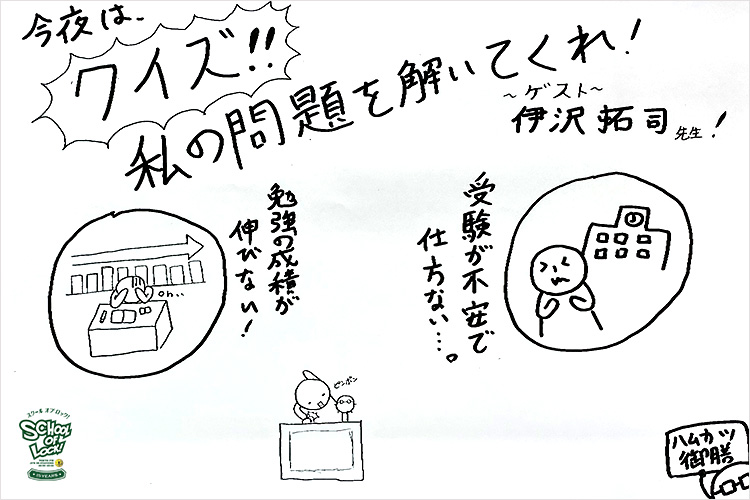 今夜は、
クイズ!!
私の問題を解いてくれ!
~ゲスト~
伊沢拓司先生!
勉強の成績が
伸びない!
oh..
受験が不安で
仕方ない…。
ピンポン
スクール オブ ロック!
SCHOOL
OF
LOCK!
ハムカツ
御膳